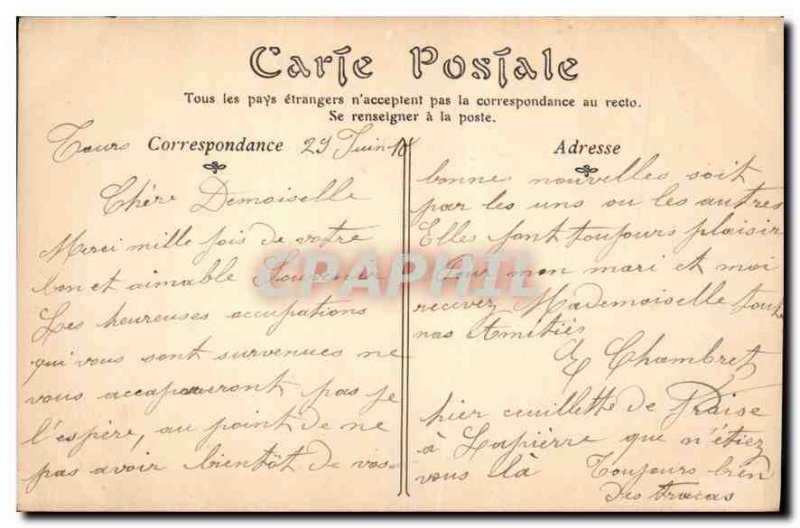 Carte Postale
Tous les pays étrangers n'acceptent pas la correspondance au recto.
Se renseigner à la poste.
Correspondance
Adresse
Tours 29 Juin 10
Chère Demoiselle
Merci mille fois de votre
bon et aimable Souvenir
Les heureuses occupations
qui vous sont survenues ne
vous accapareront pas je
l'espère, au point de ne
pas avoir bientôt de vos
bonne nouvelles soit
par les uns ou les autres
Elles font toujours plaisir
Pour mon mari et moi
recevez Mademoiselle tout
nos Amitiés
E Chambret
hier cueillette de Fraise
à Lapierre que n'étiez
vous là Toujours bien
des tracas
CPAPHIL